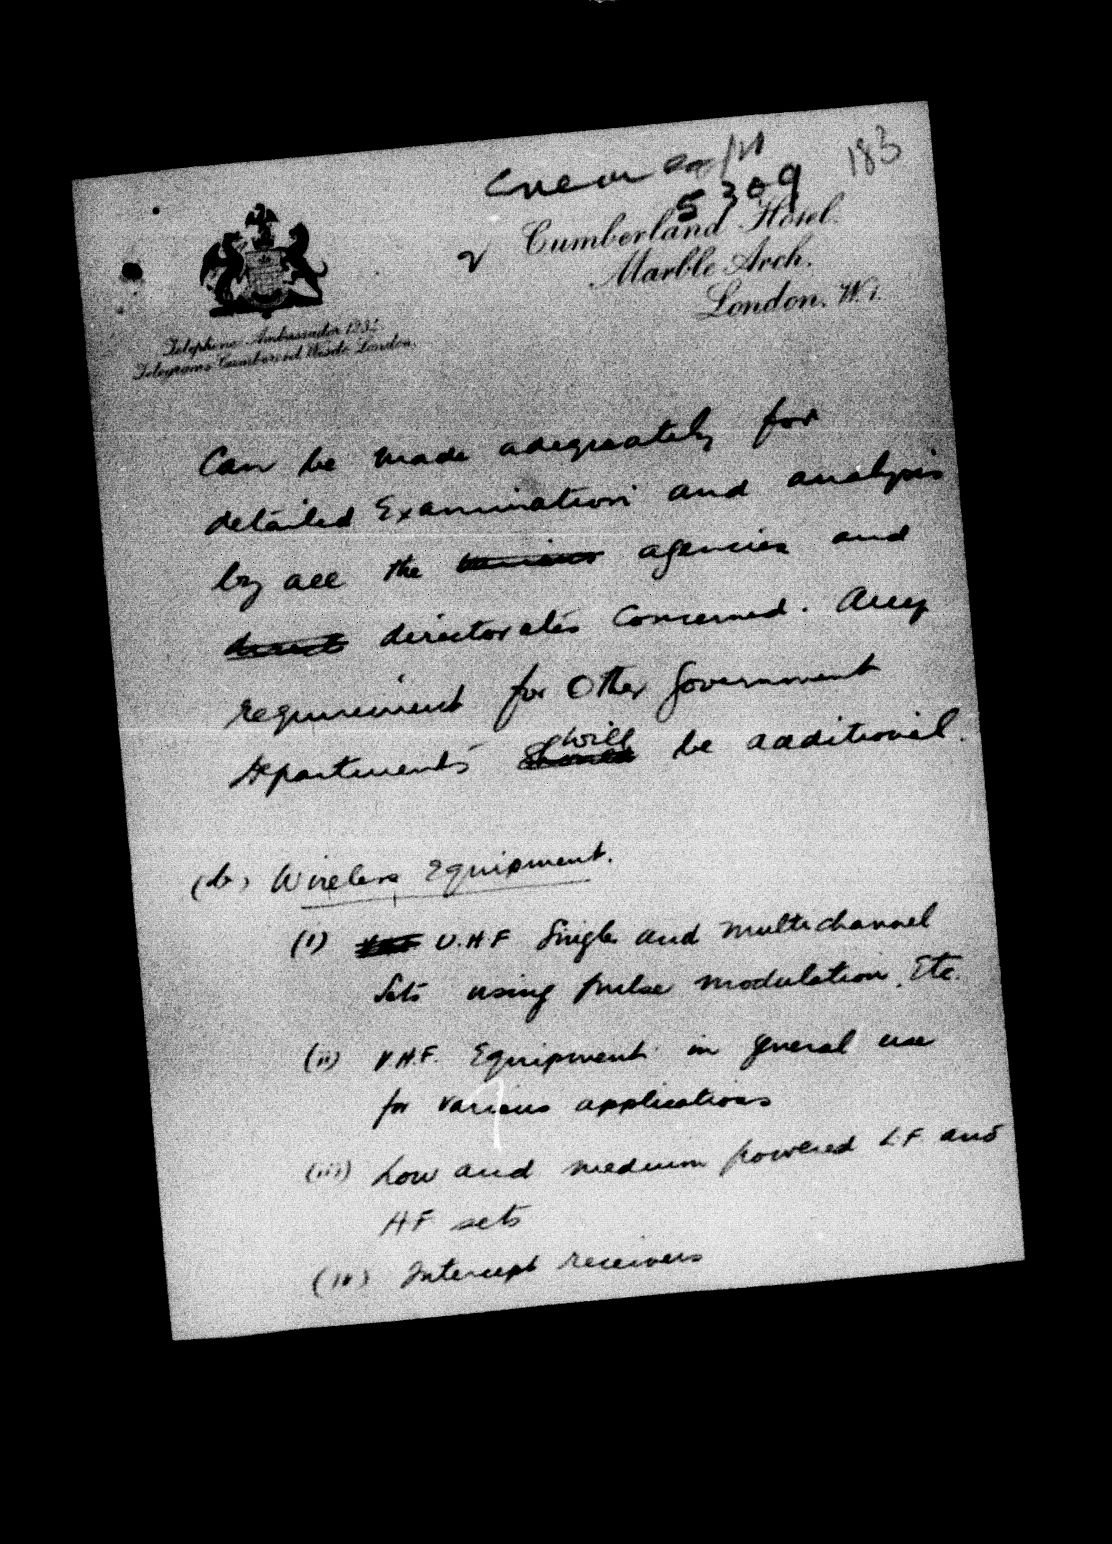 183
5309
2
Cumberland Hotel.
Marble Arch.
London. W.1.
Telephone Ambassador 1234
Telegrams Cumberond, Wesdo, London.
Can be made adequately for
detailed Examination and analysis
by all the various agencies and
direct directorates concerned. Any
requirement for Other Government
Departments should will be additional.
(b) Wireless Equipment.
(i) U.H.F Single and multichannel
Sets using pulse modulation. Etc.
(ii) V.H.F. Equipment in general use
for various applications
(iii) Low and medium powered LF and
HF sets
(iv) Intercept receivers